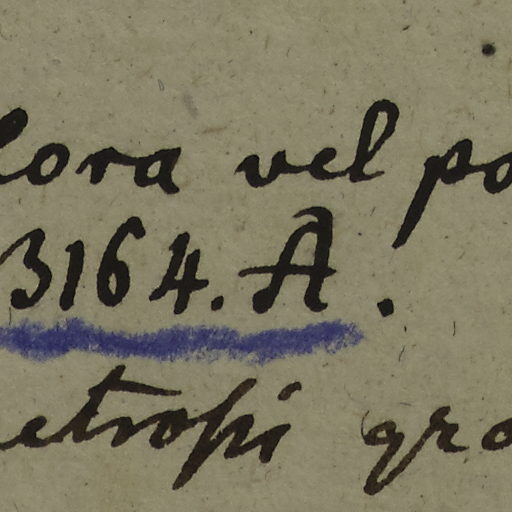 lora vel po
3164. A.
etropi gra